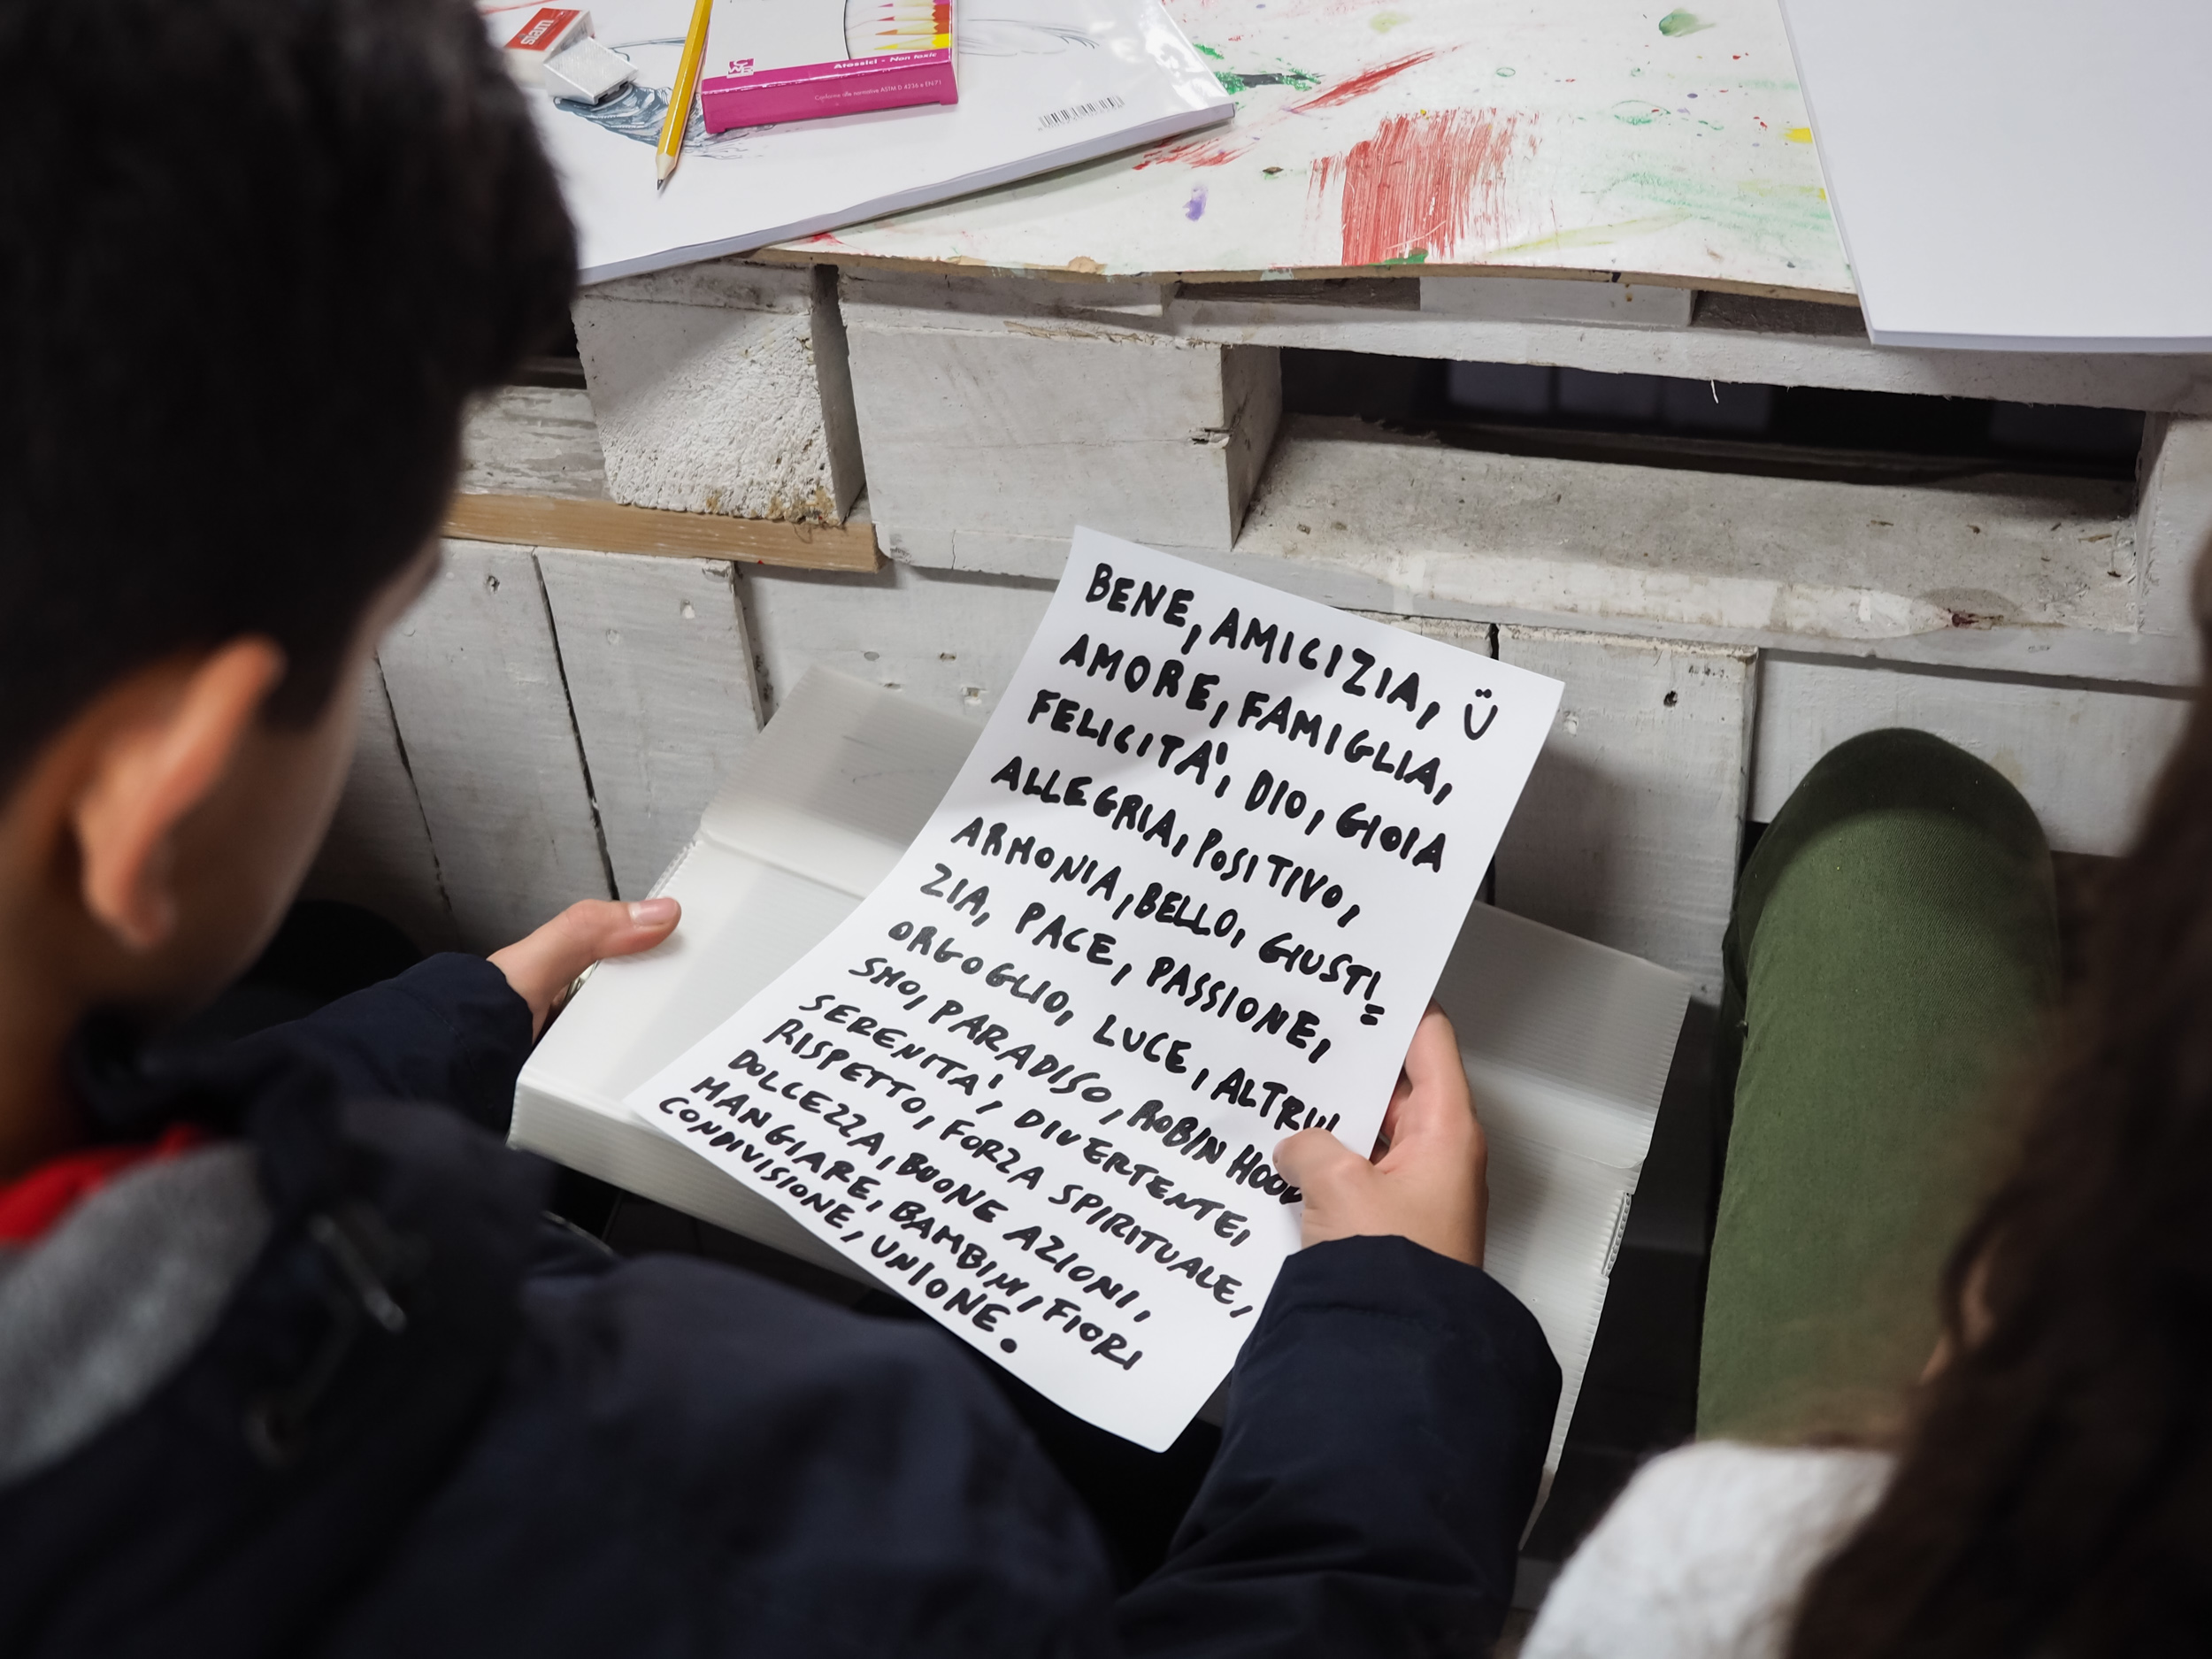 Atossici - Non toxic
Conforme alle normative ASTM D 4236 e EN71
BENE, AMICIZIA, Ü
AMORE, FAMIGLIA,
FELICITA', DIO, GIOIA
ALLEGRIA, POSITIVO,
ARMONIA, BELLO, GIUSTI=
ZIA, PACE, PASSIONE,
ORGOGLIO, LUCE, ALTRUI
SMO, PARADISO, ROBIN HOOD
SERENITA', DIVERTENTE,
RISPETTO, FORZA SPIRITUALE,
DOLCEZZA, BUONE AZIONI,
MANGIARE, BAMBINI, FIORI
CONDIVISIONE, UNIONE.